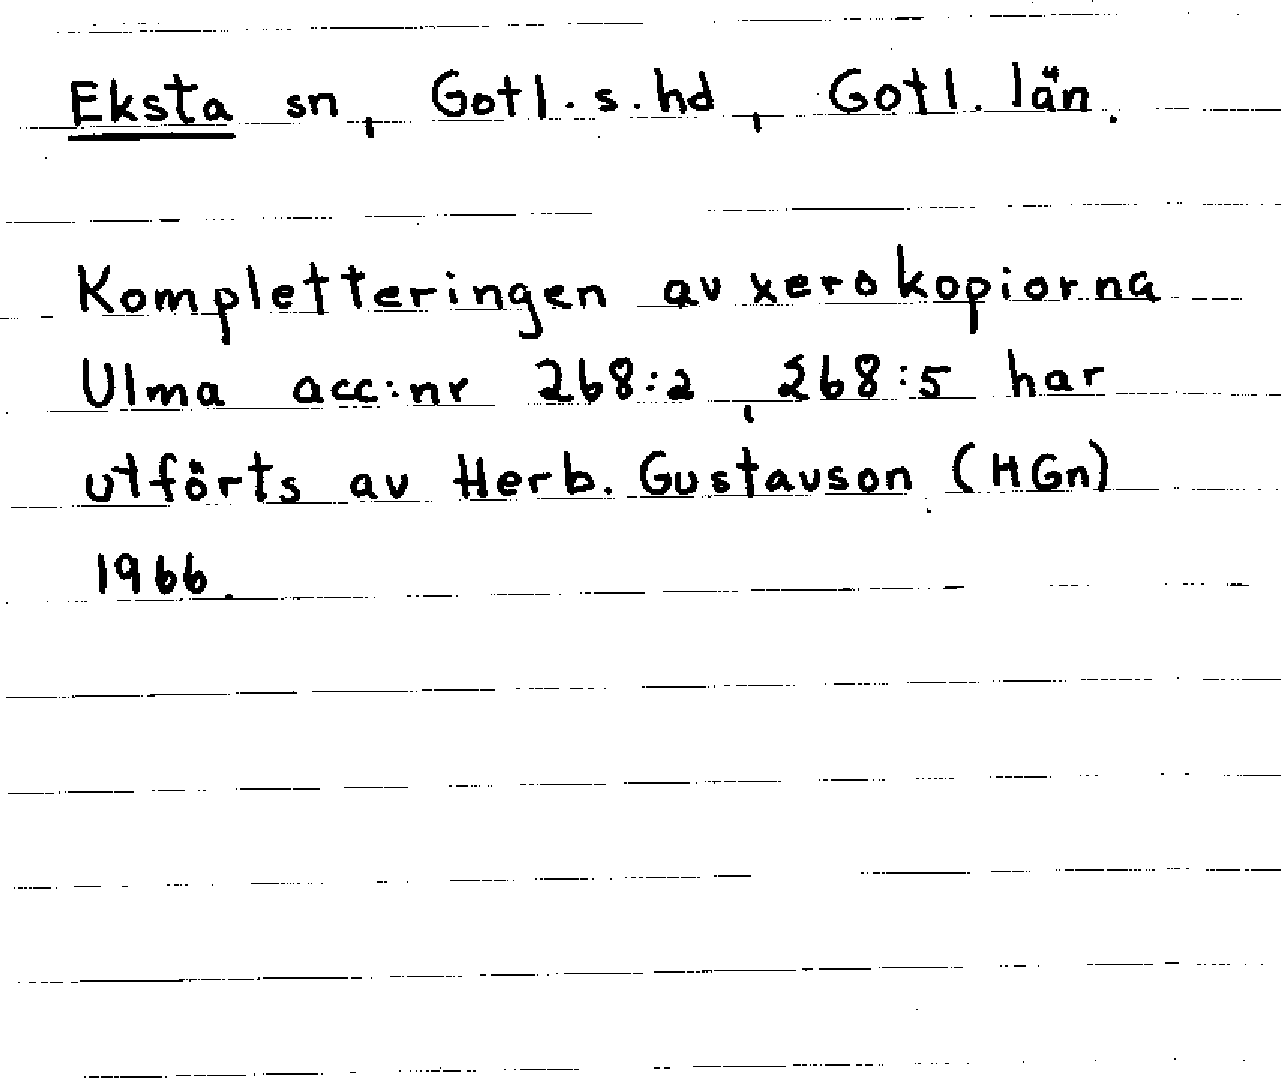 Eksta sn, Gotl. s. hd, Gotl. län.
Kompletteringen av xerokopiorna
Ulma acc:nr 268:2, 268:5 har
utförts av Herb. Gustavson (HGn)
1966.